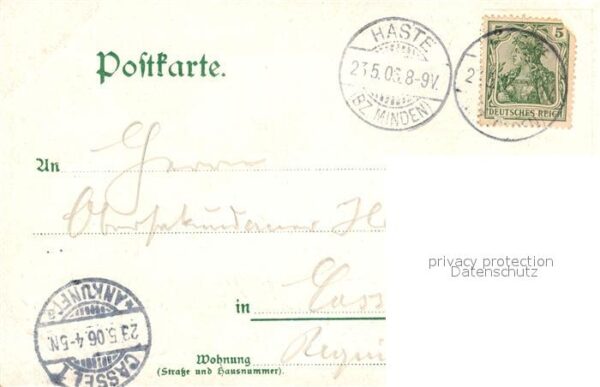 HASTE
23.5.06.8-9V.
(BZ. MINDEN)
5 5
DEUTSCHES REICH
Postkarte.
An Herrn
Obersekundaner
privacy protection
Datenschutz
in Cass
Wohnung
(Straße und Hausnummer).
CASSEL
23.5.06.4-5N.
*ANKUNFT*